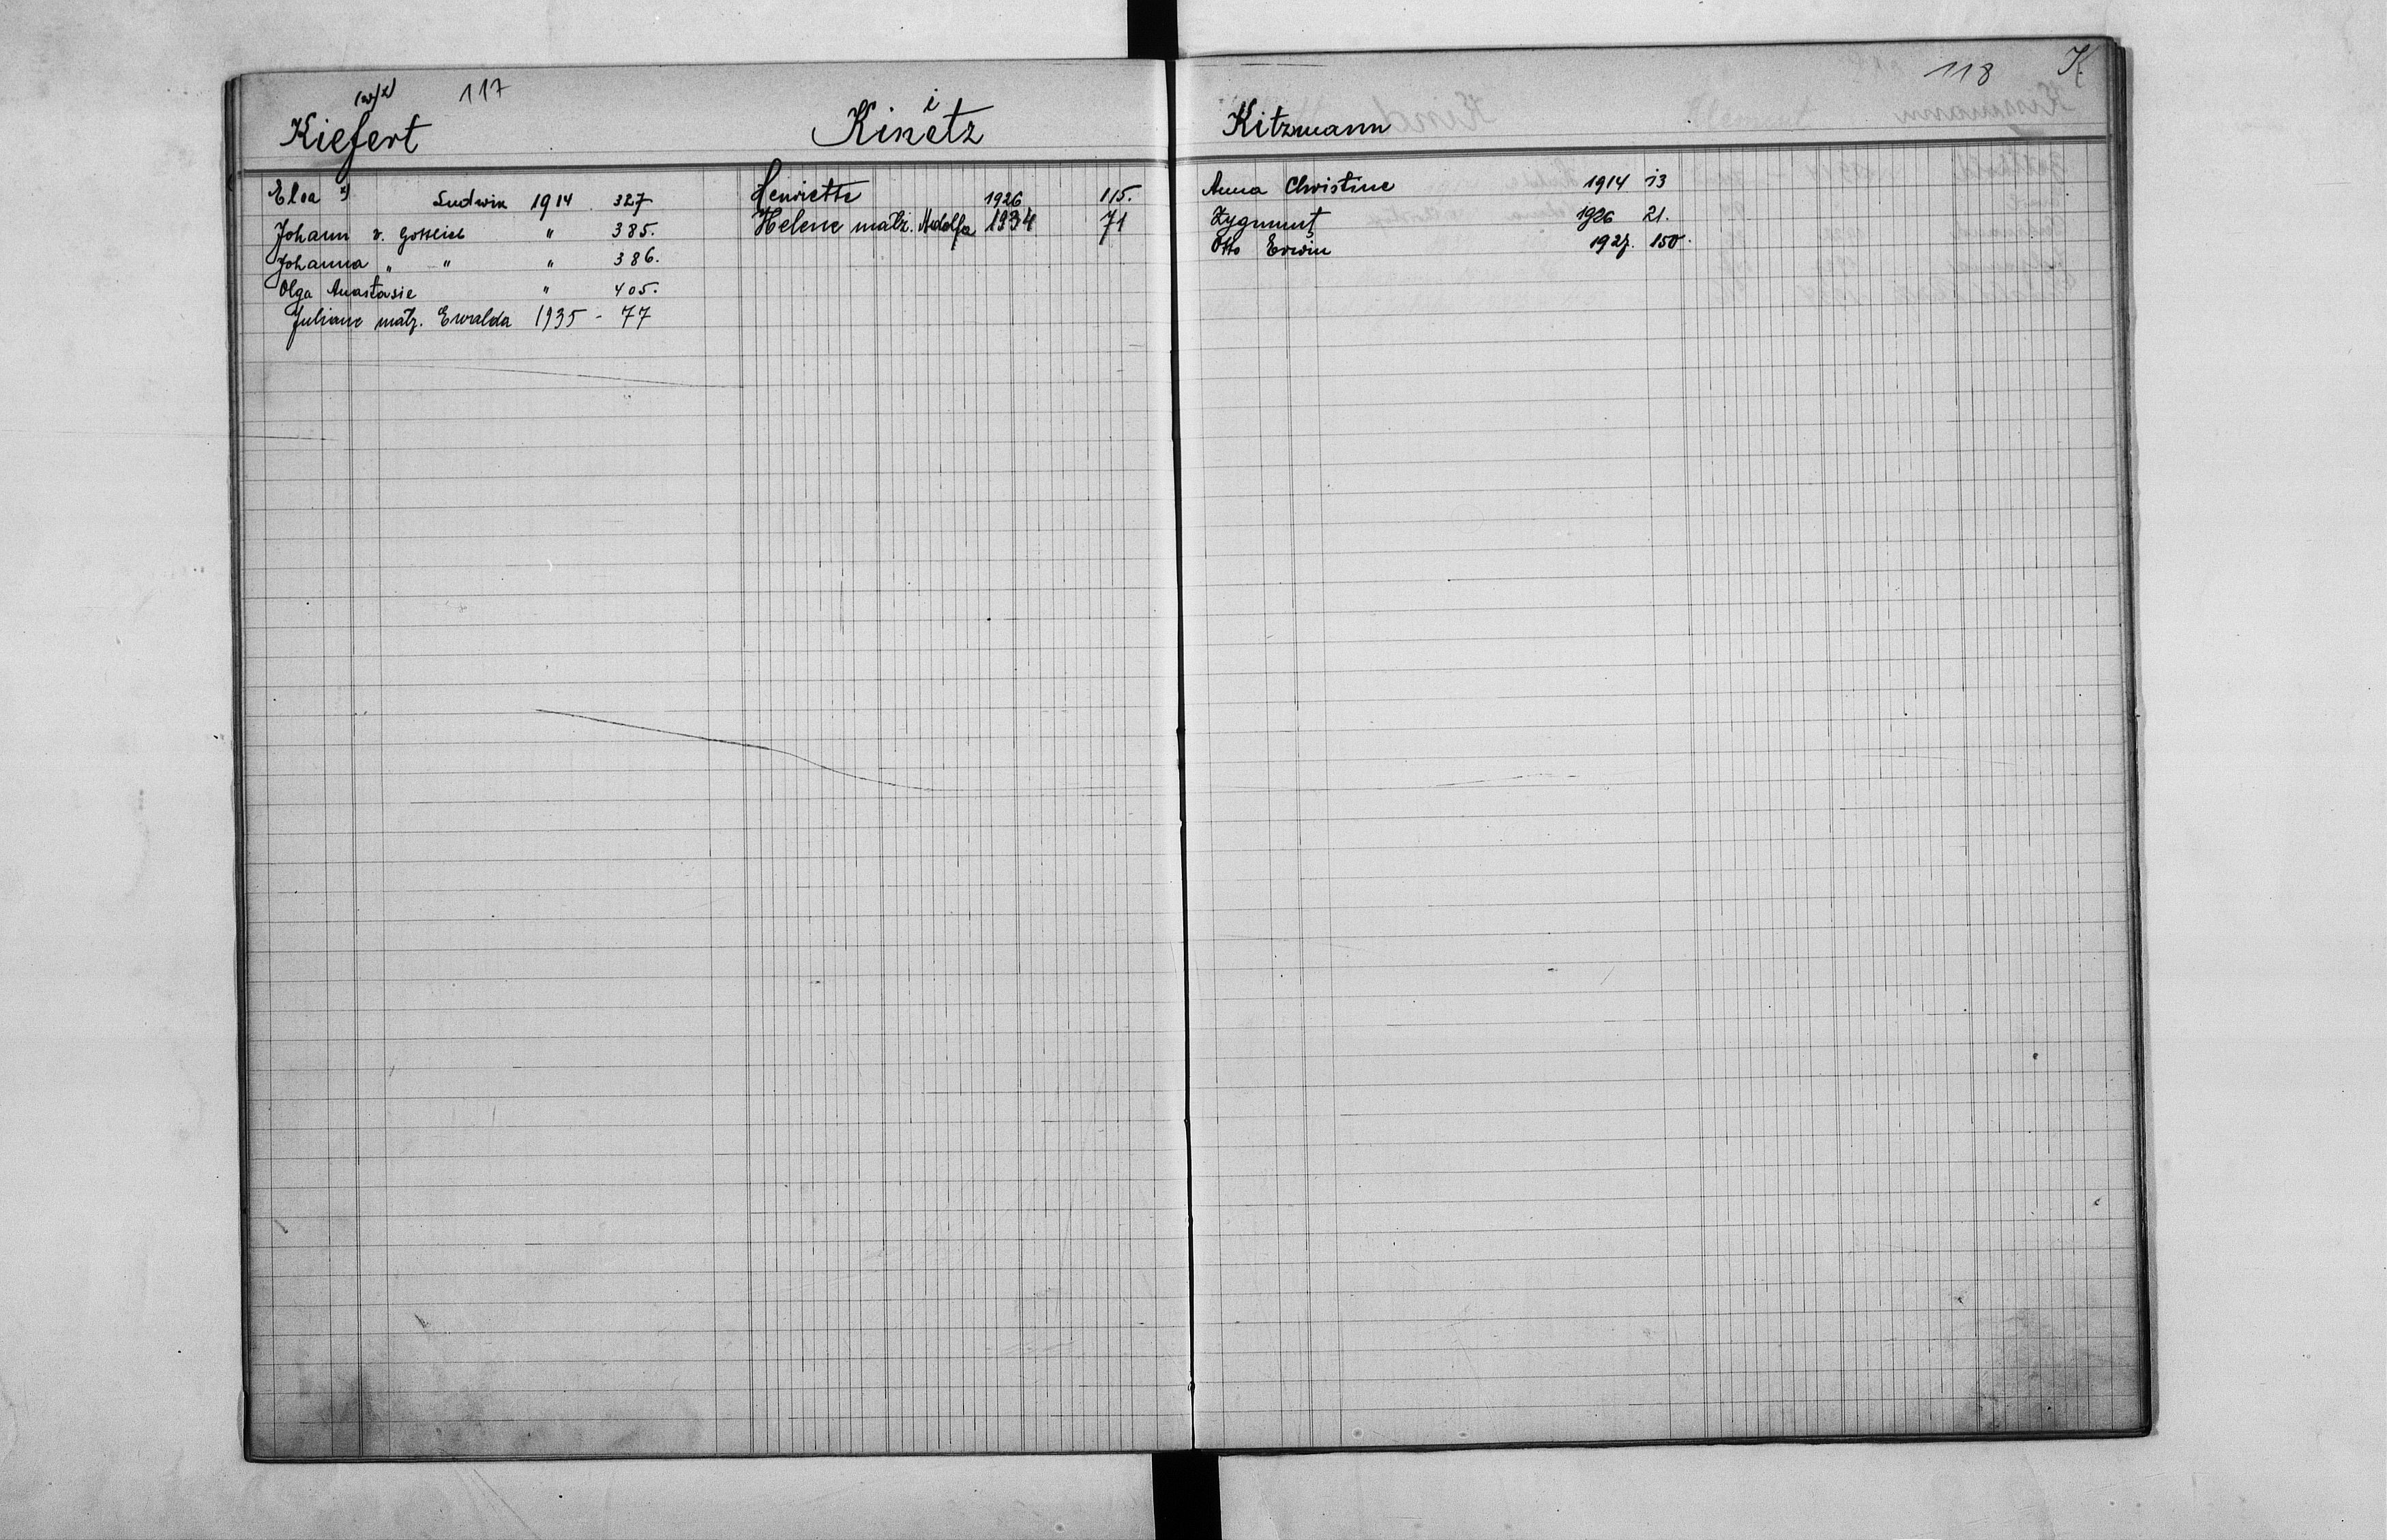 117
Kiefert
Elsa Ludwik 1914 327
Johann v. Gottlieb " 385.
Johanna " " " 386.
Olga Anastasie " 405.
Juliane małż. Ewalda 1935 - 77
i
Kinetz
Henriette 1926 115.
Helene małż. Adolfa 1934 71
118 K
Kitzmann
Anna Christine 1914 13
Zygmunt 1926 21.
Otto Erwin 1927. 150.